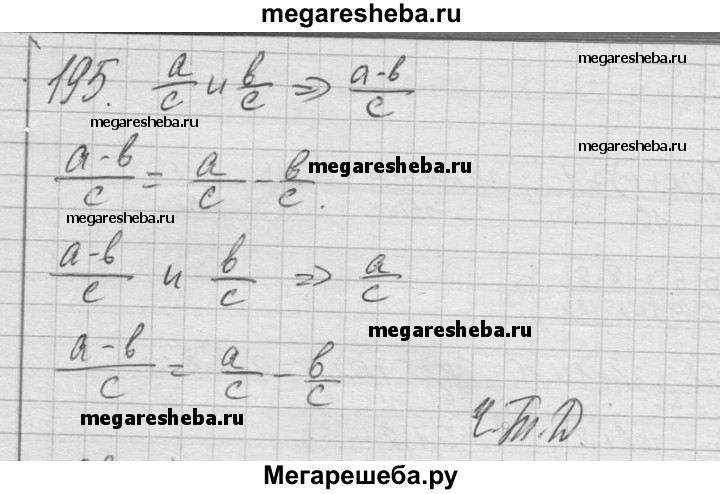 megaresheba.ru
195. a/c и в/c ⇒ (a-в)/c
megaresheba.ru
megaresheba.ru
megaresheba.ru
(a-в)/c = a/c - в/c.
megaresheba.ru
megaresheba.ru
(a-в)/c и в/c ⇒ a/c
megaresheba.ru
megaresheba.ru
(a-в)/c = a/c - в/c
megaresheba.ru
Ч.Т.Д.
Мегарешеба.ру